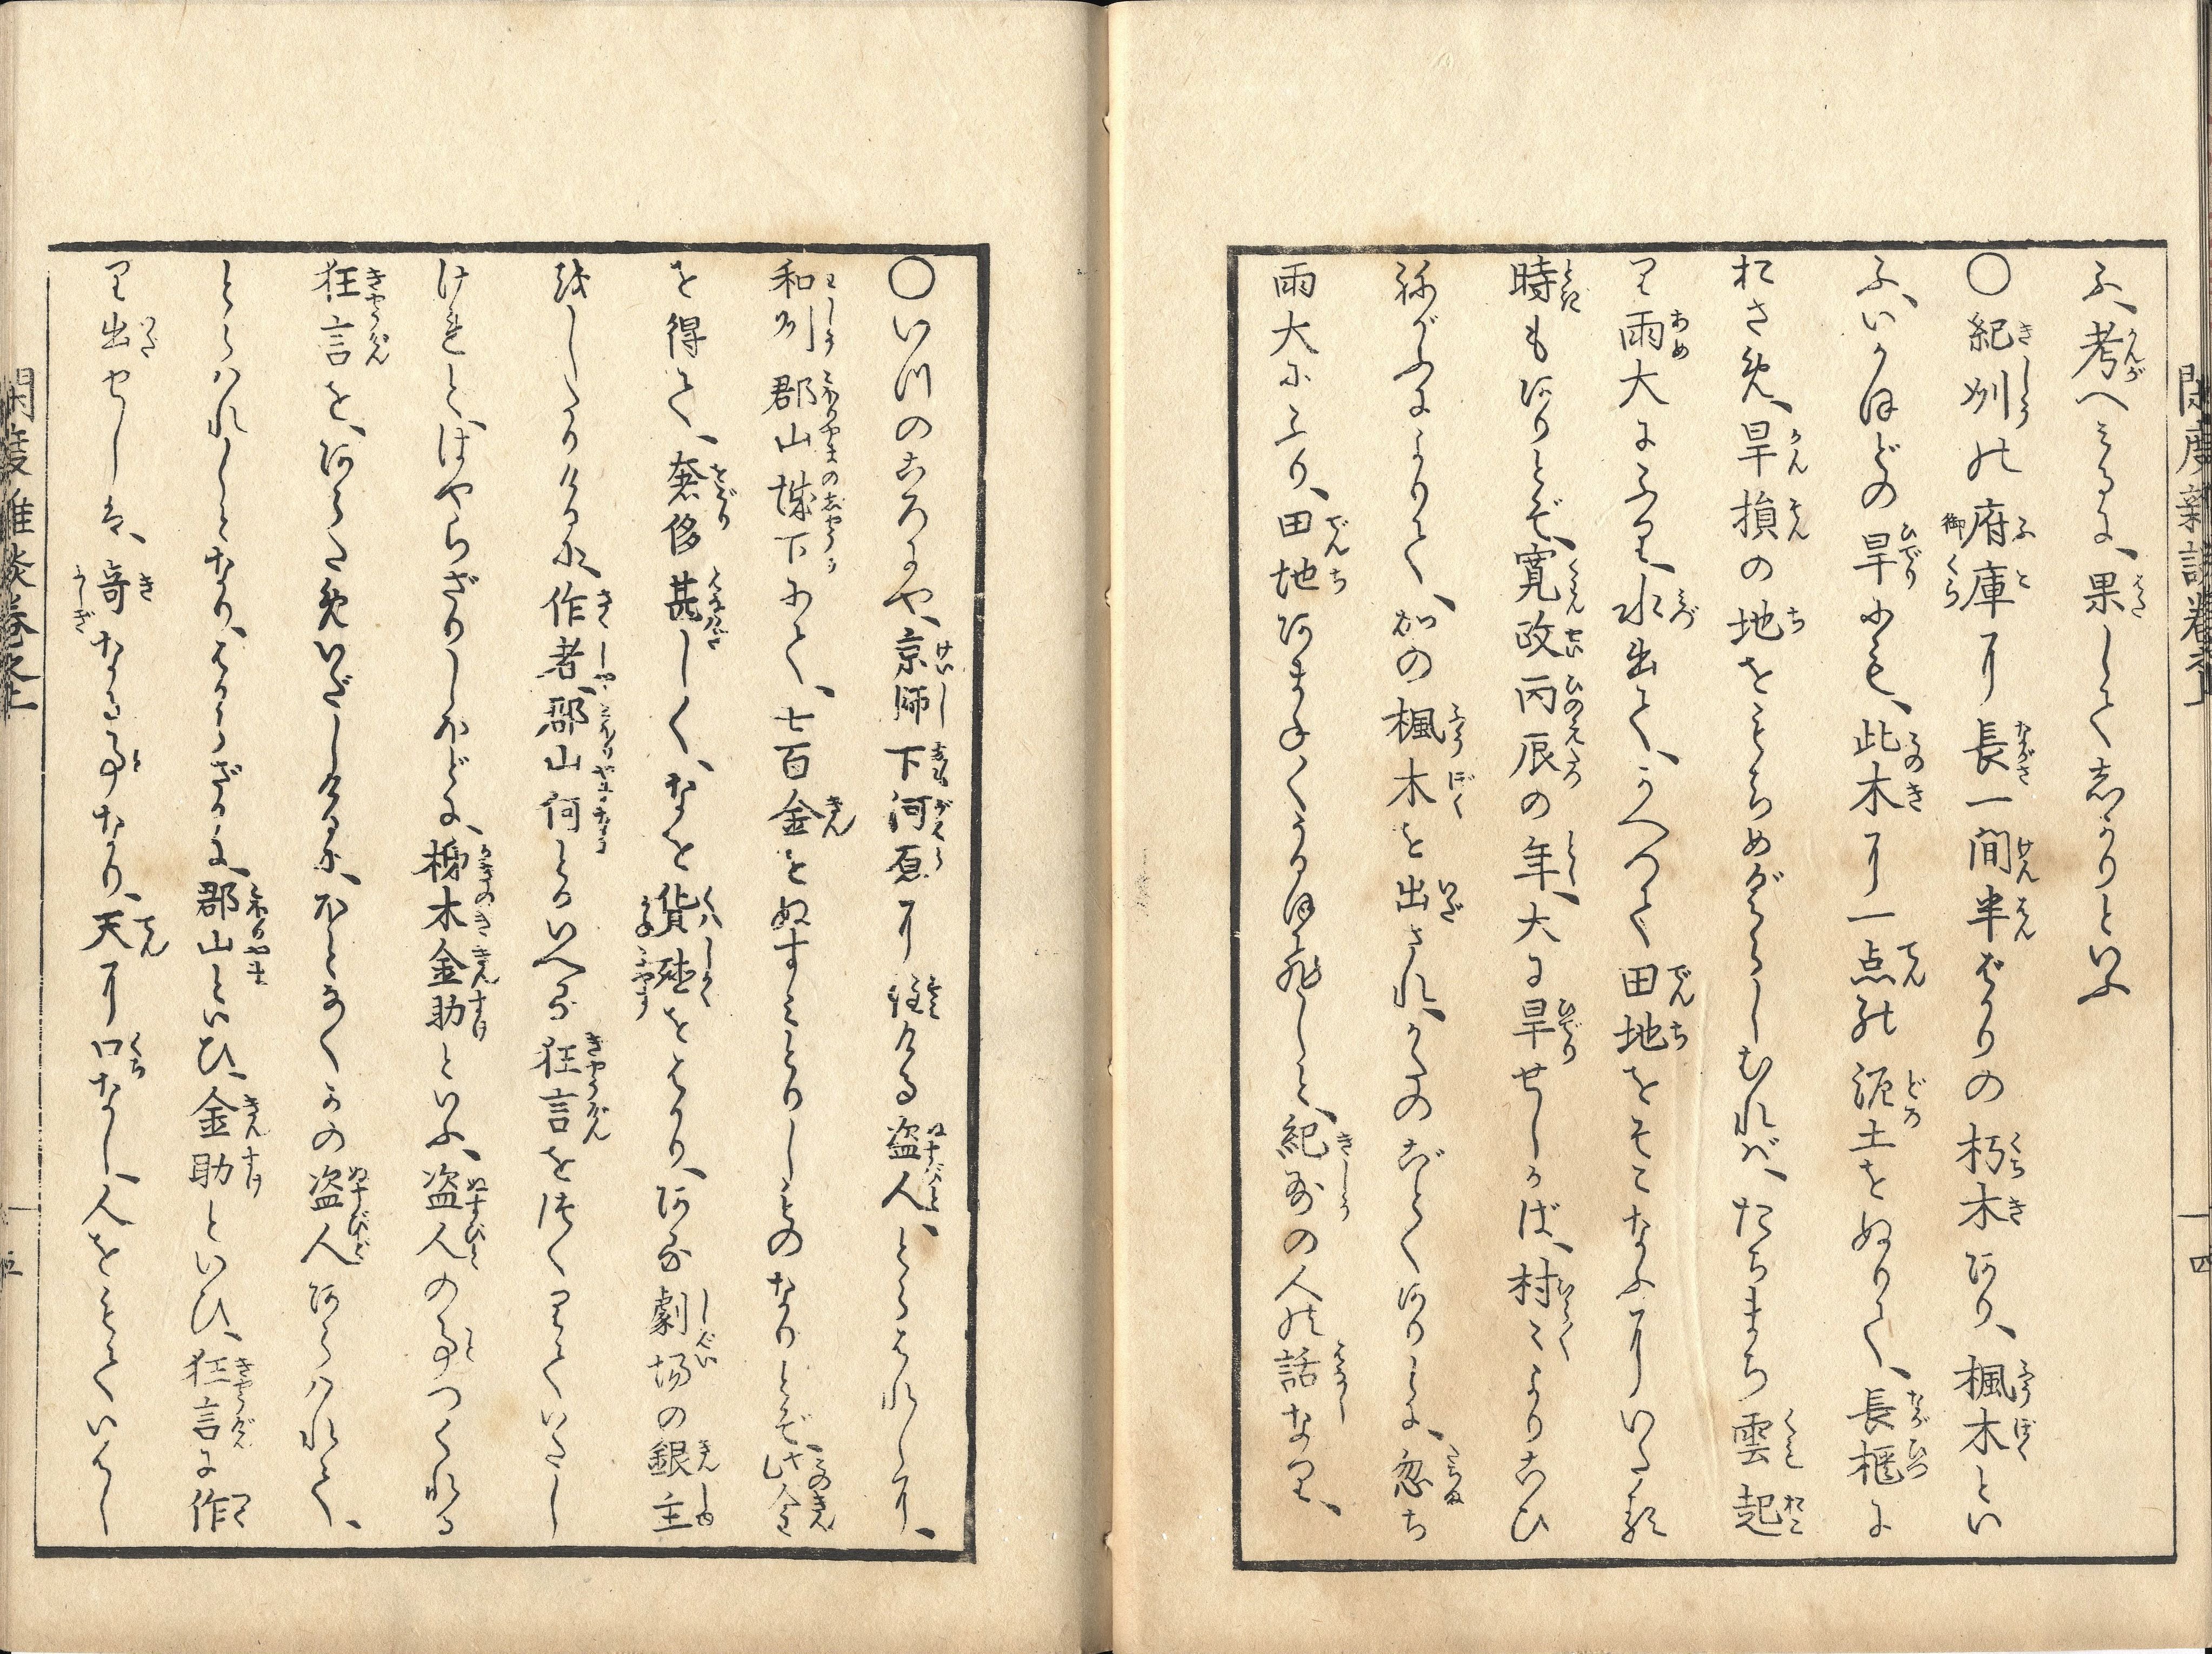 ふ、考へみるに、果してしかりといふ
〇紀州の府庫に長一間半ばかりの朽木あり、楓木とい
ふ、いかほどの旱にても、此木に一点の泥土をぬりて、長櫃に
おさめ、旱損の地をもとめがてらしむれば、たちまち雲起
り雨大にふり、水出て、かへつて田地をそこなふにいたる
時もありとぞ、寛政丙辰の年、大に旱せしかば、村々よりこひ
ねがふによりて、かの楓木を出され、かたのごとくありしに、忽ち
雨大にふり、田地あまねくうるほひしと、紀州の人の話なり、
〇いつのころにや、京師下河原に住ける盗人、とらはれしに、
和州郡山城下にて、七百金をぬすみとりしものなりとぞ、此金
を得て、奢侈甚しく、なを貨殖をはかり、ある劇場の銀主
をしたりけるに、作者郡山何とかいへる狂言をつくりていだし
けれど、はやらざりしかどに、柳木金助といふ、盗人の事つくれる
狂言を、あらためいだしけるに、ほどなくかの盗人あらはれて、
とらはれしとなり、はからざるに、郡山といひ、金助といひ、狂言に作
り出せしは、奇なる事なり、天に口なし、人をもていはし